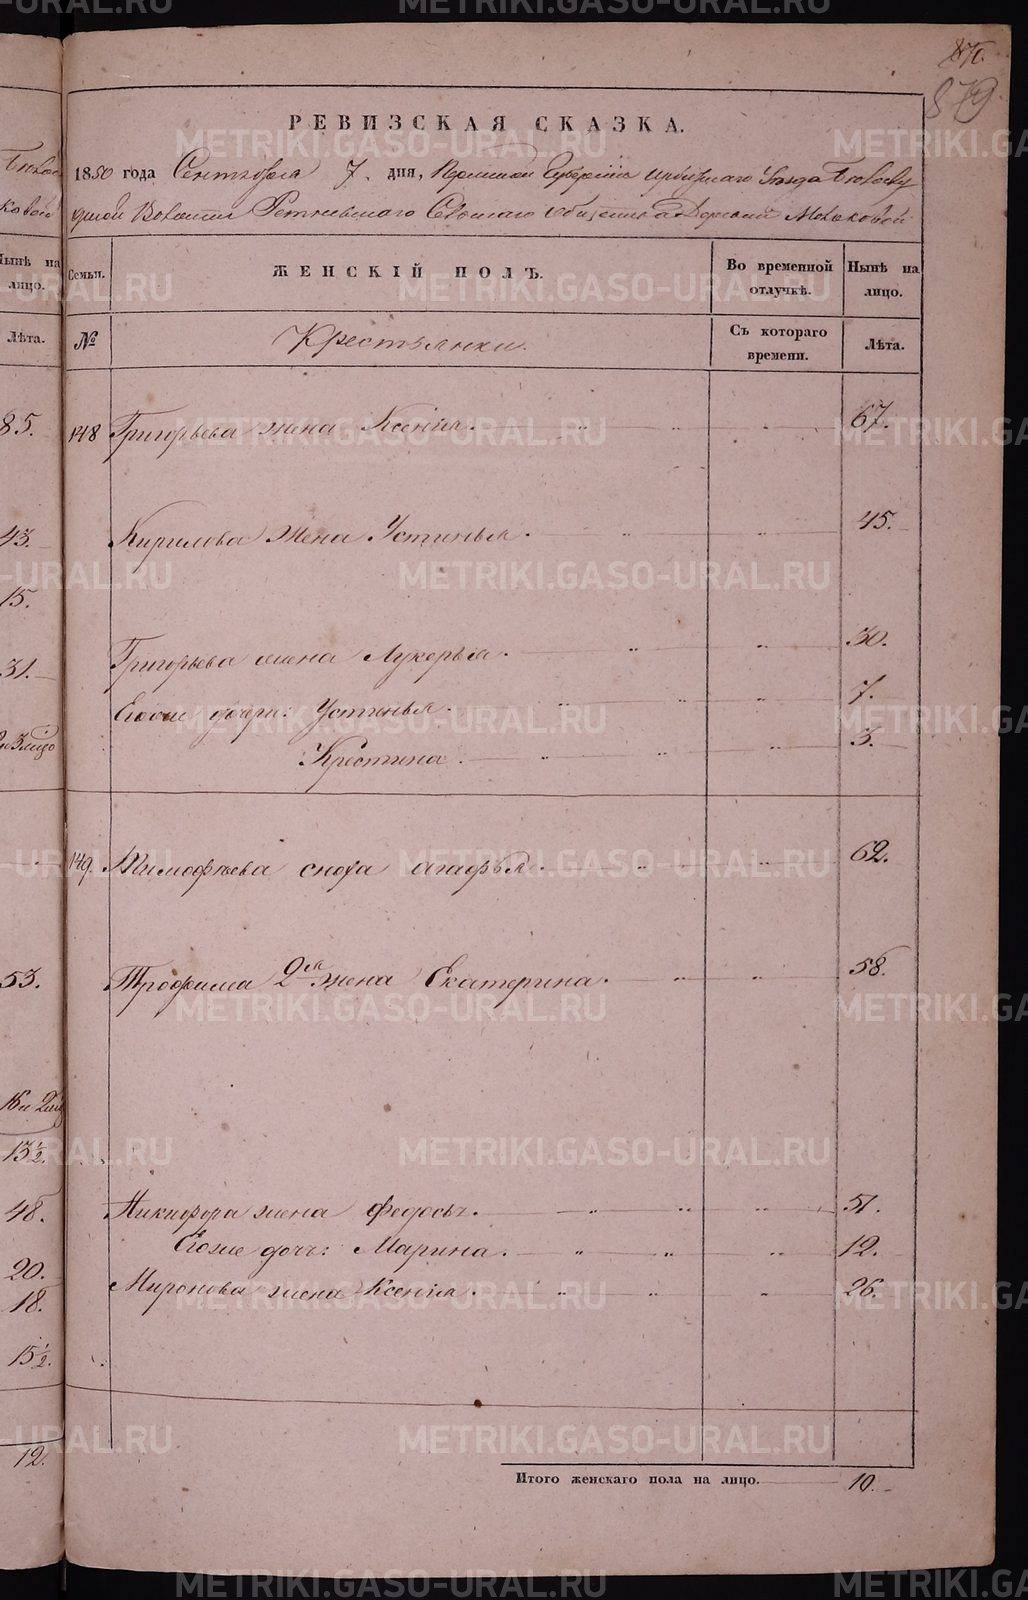 876.
879
РЕВИЗСКАЯ СКАЗКА.
1850 года Сентября 7. дня, Пермской Губернiи Ирбитскаго Уѣзда Бѣлослу
дской Волости Ретневскаго Сельскаго общества Деревни Мельковой
Семьи. ЖЕНСКIЙ ПОЛЪ. Во временной отлучкѣ. Нынѣ на лицо.
№ Крестьянки. Съ котораго времени. Лѣта.
148 Григорьева жена Ксенiя. 67.
Кирилова жена Устинья. 45.
Григорьева жена Лукерья. 30.
Егоже дочери: Устинья. 7.
Крестина. 3.
149. Тимофѣева сноха Агафья. 62.
Трофима 2я жена Екатерина. 58.
Никифора жена Федосья. 51.
Егоже дочь: Марина. 12.
Миронова жена Ксенiя. 26.
Итого женскаго пола на лицо. 10.
Нынѣ на лицо.
Лѣта.
85.
43.
15.
31.
53.
13½.
48.
20.
18.
15½.
12.
METRIKI.GASO-URAL.RU